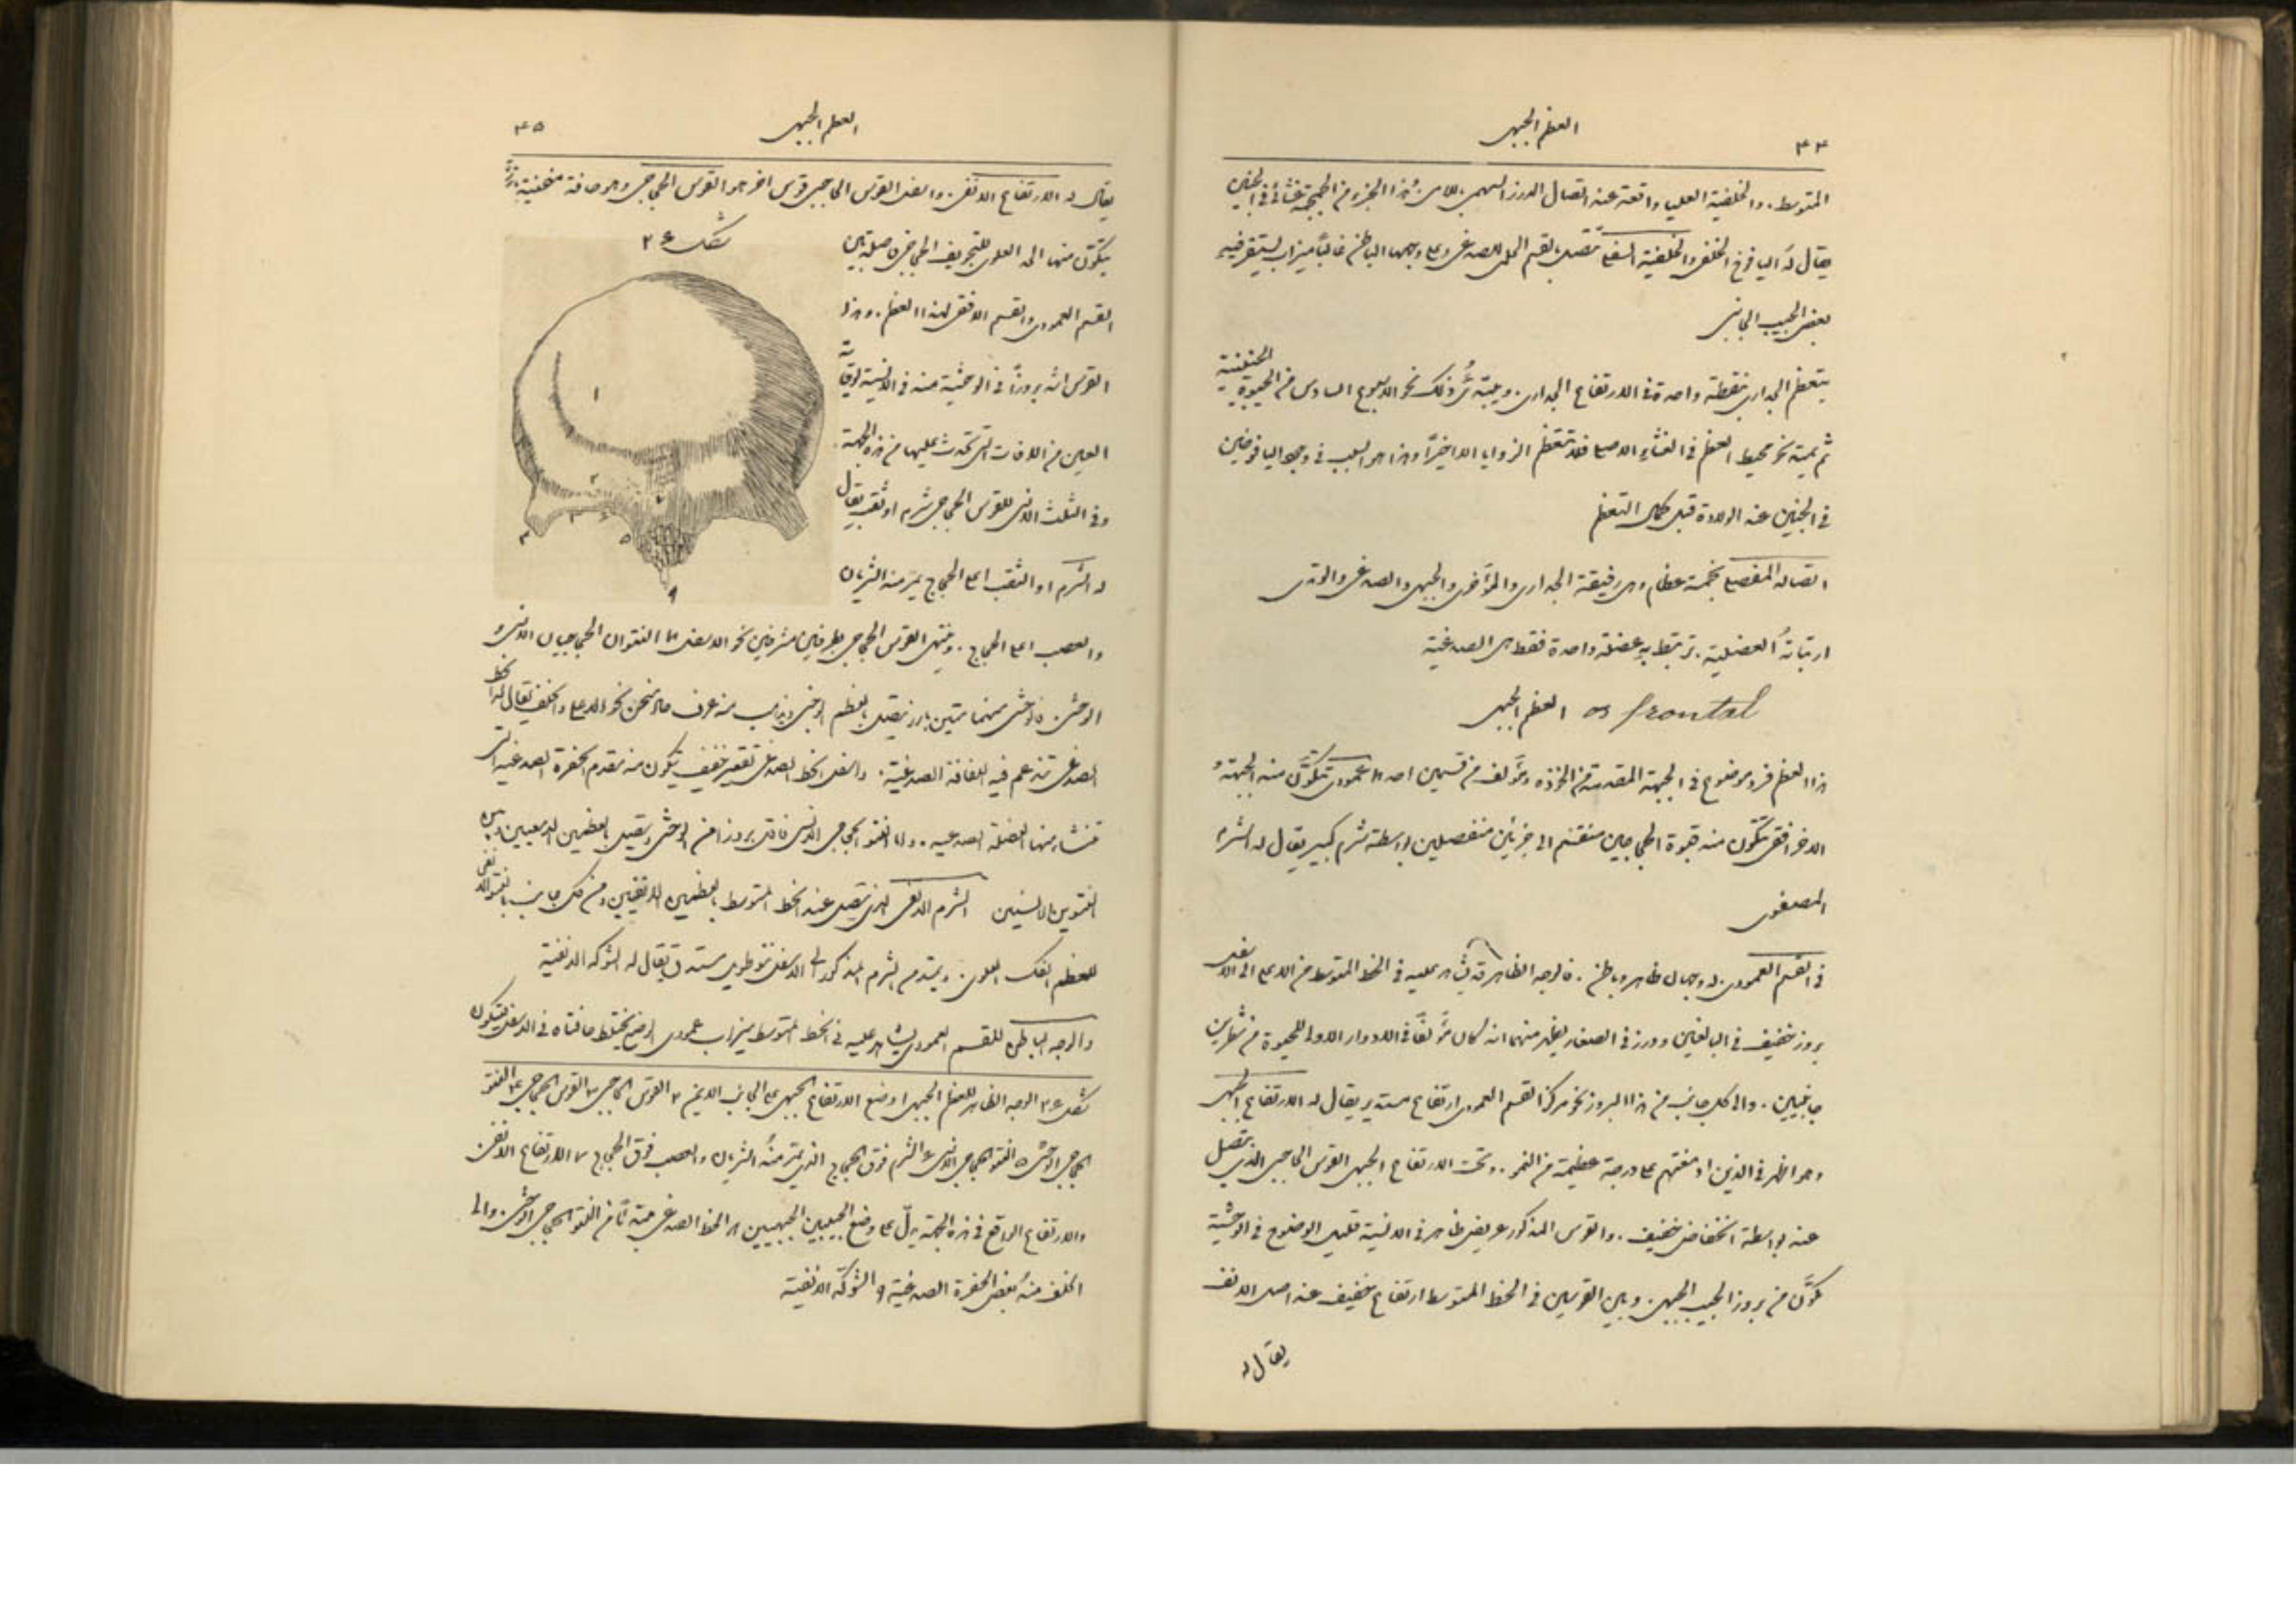 ٤٤
العظم الجبهي
المتوسط. والخلفية العليا واقعة عند اتصال الدرز السهمي باللامي وهذا الجزء من الجمجمة غشائي في الجنين
يقال له اليافوخ الخلفي والخلفية السفلى تتصل بالقسم الحلمي للصدغي وعلى وجهها الباطن غالباً ميزاب يستقر فيه
بعض الجيب الجانبي
يتعظم الجداري بنقطة واحدة في الارتفاع الجداري. ويبتدئ ذلك نحو الاسبوع السادس من الحيوة الجنينية
ثم يمتد نحو محيط العظم في الغشاء الاصلي فلا تتعظم الزوايا الا اخيراً وهذا هو السبب في وجود اليافوخين
في الجنين عند الولادة قبل كمال التعظم
اتصاله المفصلي بخمسة عظام وهي رفيقه الجداري والمؤخري والجبهي والصدغي والوتدي
ارتباطاته العضلية. ترتبط به عضلة واحدة فقط هي الصدغية
os frontal العظم الجبهي
هذا العظم فرد موضوع في الجهة المقدمة من الخوذة ومؤلف من قسمين احدهما عمودي تتكون منه الجبهة و
الاخر افقي تتكون منه قبوة الحجاجين منقسم الى جزئين منفصلين بواسطة شرم كبير يقال له الشرم
المصفوي
في القسم العمودي. له وجهان ظاهر وباطن. فالوجه الظاهر قد يشاهد عليه في الخط المتوسط من الاعلى الى الاسفل
بروز خفيف في البالغين ودرز في الصغار يظهر منهما انه كان مؤلفاً في الادوار الاولى للحيوة من شطرين
جانبيين. والى كل جانب من هذا البروز نحو مركز القسم العمودي ارتفاع مستدير يقال له الارتفاع الجبهي
وهو اظهر في الذين ادمغتهم على درجة عظيمة من النمو. وتحت الارتفاع الجبهي القوس الحاجبي الذي ينفصل
عنه بواسطة انخفاض خفيف. والقوس المذكور عريض ظاهر في الانسية قليل الوضوح في الوحشية
مكوَّن من بروز الجيب الجبهي. وبين القوسين في الخط المتوسط ارتفاع خفيف عند اصل الانف
يقال له
العظم الجبهي
٤٥
يقال له الارتفاع الانفي. واسفل القوس الحاجبي قوس اخر هو القوس الحجاجي وهو حافة منحنية بارزة
شكل ٢٤
يتكون منها الحد العلوي للتجويف الحجاجي فاصلة بين
القسم العمودي والقسم الافقي لهذا العظم. وهذا
القوس اشد بروزاً في الوحشية منه في الانسية لوقاية
العين من الافات التي تحدث عليها من هذه الجهة.
وفي الثلث الانسي للقوس الحجاجي شرم او ثقب يقال
له الشرم او الثقب اعلى الحجاج يمر منه الشريان
١
٢
٣
٤
٥
٦
٧
٩
والعصب اعلى الحجاج. وينتهي القوس الحجاجي بطرفين مشرفين نحو الاسفل هما النتوان الحجاجيان الانسي و
الوحشي. فالوحشي منهما متين بارز يتصل بالعظم الوجني ويذهب منه عرف حاد منحن نحو الاعلى والخلف يقال له الخط
الصدغي تندغم فيه اللفافة الصدغية. واسفل الخط الصدغي تقعير خفيف يتكون منه مقدم الحفرة الصدغية التي
تنشأ منها العضلة الصدغية. واما النتو الحجاجي الانسي فاقل بروزاً من الوحشي ويتصل بالعظمين الدمعيين وبين
النتوين الانسيين الشرم الانفي الذي يتصل عند الخط المتوسط بالعظمين الانفيين ومن كل جانب بالنتو الانفي
للعظم الفك العلوي. ويمتد من الشرم المذكور الى الاسفل نتو طويل مستدق يقال له الشوكة الانفية
والوجه الباطن للقسم العمودي يشاهد عليه في الخط المتوسط ميزاب عمودي اوضح يختلط حافتاه في الاسفل فيتكون
شكل ٢٤ الوجه الظاهر للعظم الجبهي ١ وضع الارتفاع الجبهي على الجانب الايمن ٢ القوس الحاجبي ٣ القوس الحجاجي ٤ النتو
الحجاجي الوحشي ٥ النتو الحجاجي الانسي ٦ الشرم فوق الحجاج الذي يمر منه الشريان والعصب فوق الحجاج ٧ الارتفاع الانفي.
والارتفاع الواقع في هذه الجهة يدل على وضع الجيبين الجبهيين ٨ الخط الصدغي مبتدئاً من النتو الحجاجي الوحشي والى
الخلف منه بعض الحفرة الصدغية ٩ الشوكة الانفية